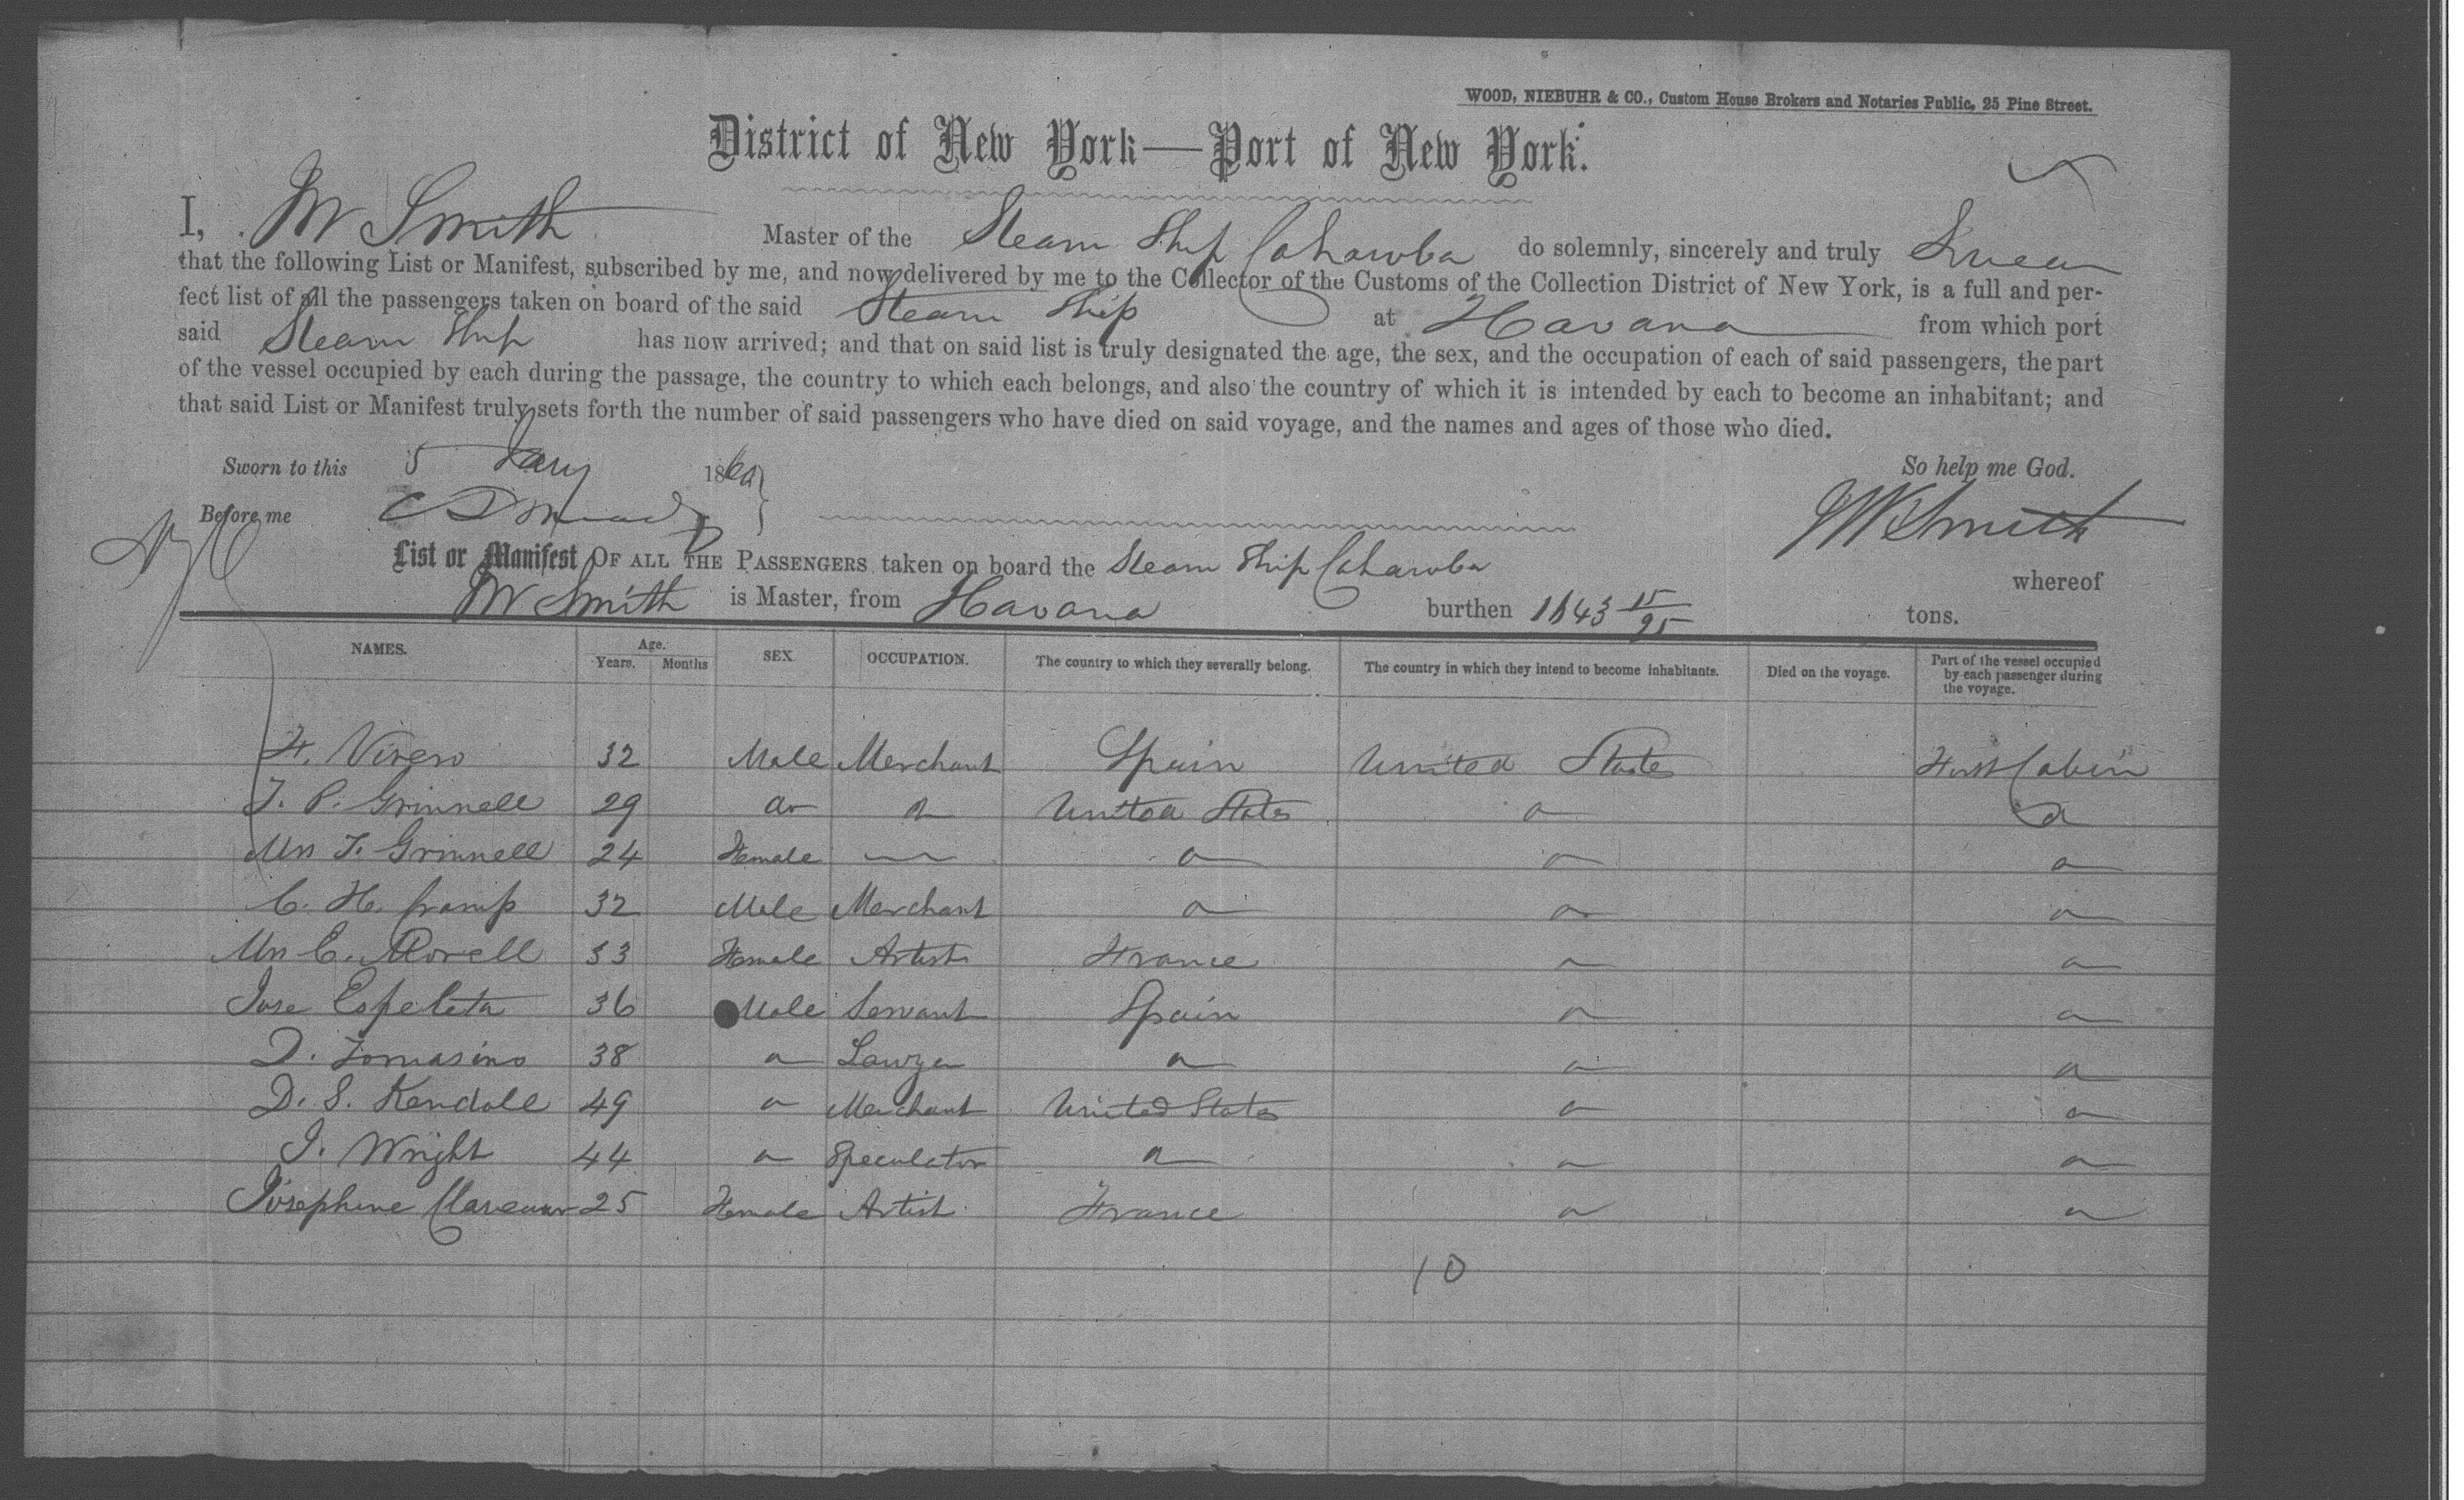 WOOD, NIEBUHR & CO., Custom House Brokers and Notaries Public, 25 Pine Street.
District of New York—Port of New York.
I, M Smith Master of the Steam Ship Cahawba do solemnly, sincerely and truly Swear
that the following List or Manifest, subscribed by me, and now delivered by me to the Collector of the Customs of the Collection District of New York, is a full and per-
fect list of all the passengers taken on board of the said Steam Ship at Havana from which port
said Steam Ship has now arrived; and that on said list is truly designated the age, the sex, and the occupation of each of said passengers, the part
of the vessel occupied by each during the passage, the country to which each belongs, and also the country of which it is intended by each to become an inhabitant; and
that said List or Manifest truly sets forth the number of said passengers who have died on said voyage, and the names and ages of those who died.
Sworn to this 5 Jany 1860 So help me God.
Before me Smith
List or Manifest OF ALL THE PASSENGERS taken on board the Steam Ship Cahawba whereof
M Smith is Master, from Havana burthen 1643 15/95 tons.
NAMES. Age. Years. Months SEX. OCCUPATION. The country to which they severally belong. The country in which they intend to become inhabitants. Died on the voyage. Part of the vessel occupied by each passenger during the voyage.
H. Vivero 32 Male Merchant Spain United States First Cabin
T. P. Grinnell 29 do do United States do do
Mrs T. Grinnell 24 Female — do do do
C. H. Cramp 32 Male Merchant do do do
Mrs C. Morell 33 Female Artist France do do
Jose Espeleta 36 Male Servant Spain do do
D. Tomasino 38 do Lawyer do do do
D. S. Kendall 49 do Merchant United States do do
J. Wright 44 do Speculator do do do
Josephine 25 Female Artist France do do
10